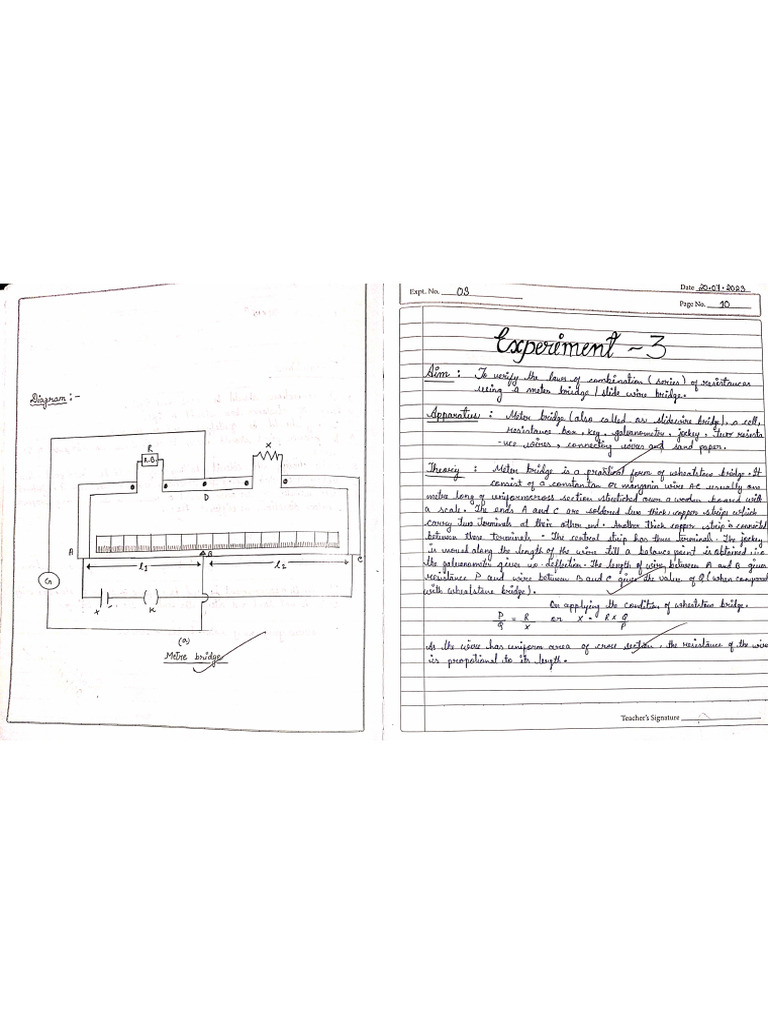 Diagram :-
R
R.B.
X
D
A
B
C
l1
l2
G
+ -
K
(a)
Metre bridge
Expt. No. 03
Date 20.07.2023
Page No. 10
Experiment ~ 3
Aim : To verify the laws of combination (series) of resistances
using a meter bridge / slide wire bridge.
Apparatus : Meter bridge (also called as slidewire bridge), a cell,
resistance box, key, galvanometer, jockey, Two resista
-nce wires, connecting wires and sand paper.
Theory : Metor bridge is a practical form of wheatstone bridge. It
consist of a constantan or manganin wire AC usually one
metre long of uniform cross section stretched over a wooden board with
a scale. The ends A and C are soldered two thick copper strips which
carry Two Terminals at their other end. Another Thick copper strip is connected
between these terminals. The central strip has three terminals. The jockey
is moved along the length of the wire till a balance point is obtained, i.e.
the galvanometer gives no deflection. The length of wire between A and B gives
resistance P and wire between B and C gives the value of Q (when compared
with wheatstone bridge).
On applying the condition of wheatstone bridge.
P/Q = R/X or X = R × Q/P
As the wire has uniform area of cross section, the resistance of the wire
is propotional to its length.
Teacher's Signature